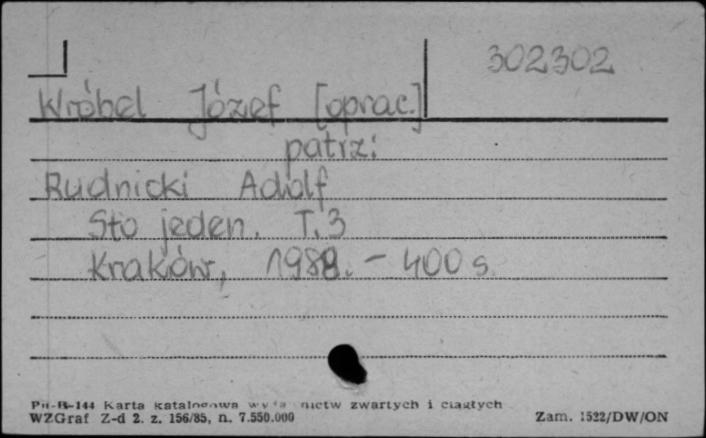 302302
Wróbel Józef [oprac.]
patrz:
Rudnicki Adolf
Sto jeden. T. 3
Kraków, 1988. - 400 s.
Pu-B-144 Karta katalogowa wydawnictw zwartych i ciągłych
WZGraf Z-d 2. z. 156/85, n. 7.550.000
Zam. 1522/DW/ON